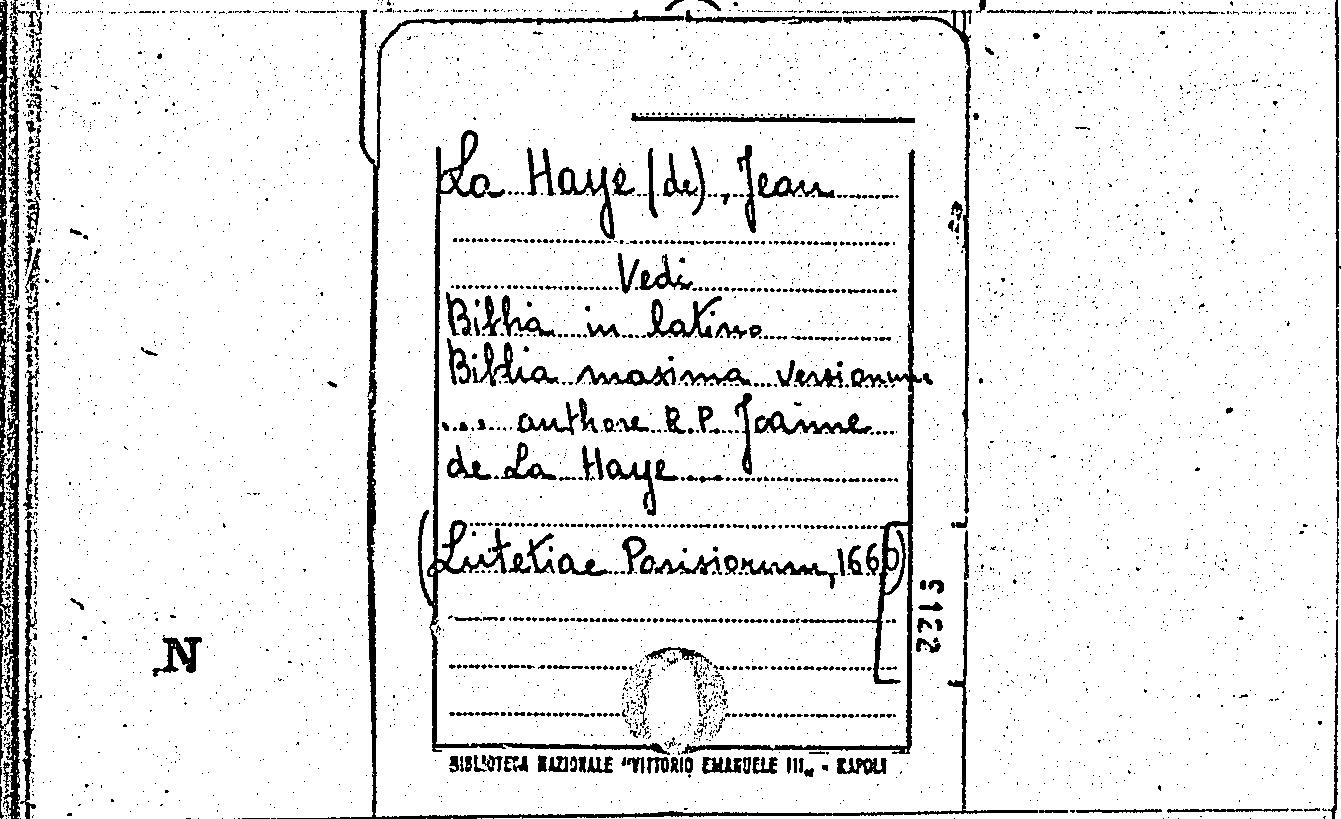 La Haye (de), Jean
Vedi
Biblia in latino
Biblia maxima versionum
... authore R.P. Joanne
de La Haye...
(Lutetiae Parisiorum, 1660)
5122
N
BIBLIOTECA NAZIONALE "VITTORIO EMANUELE III„ - NAPOLI